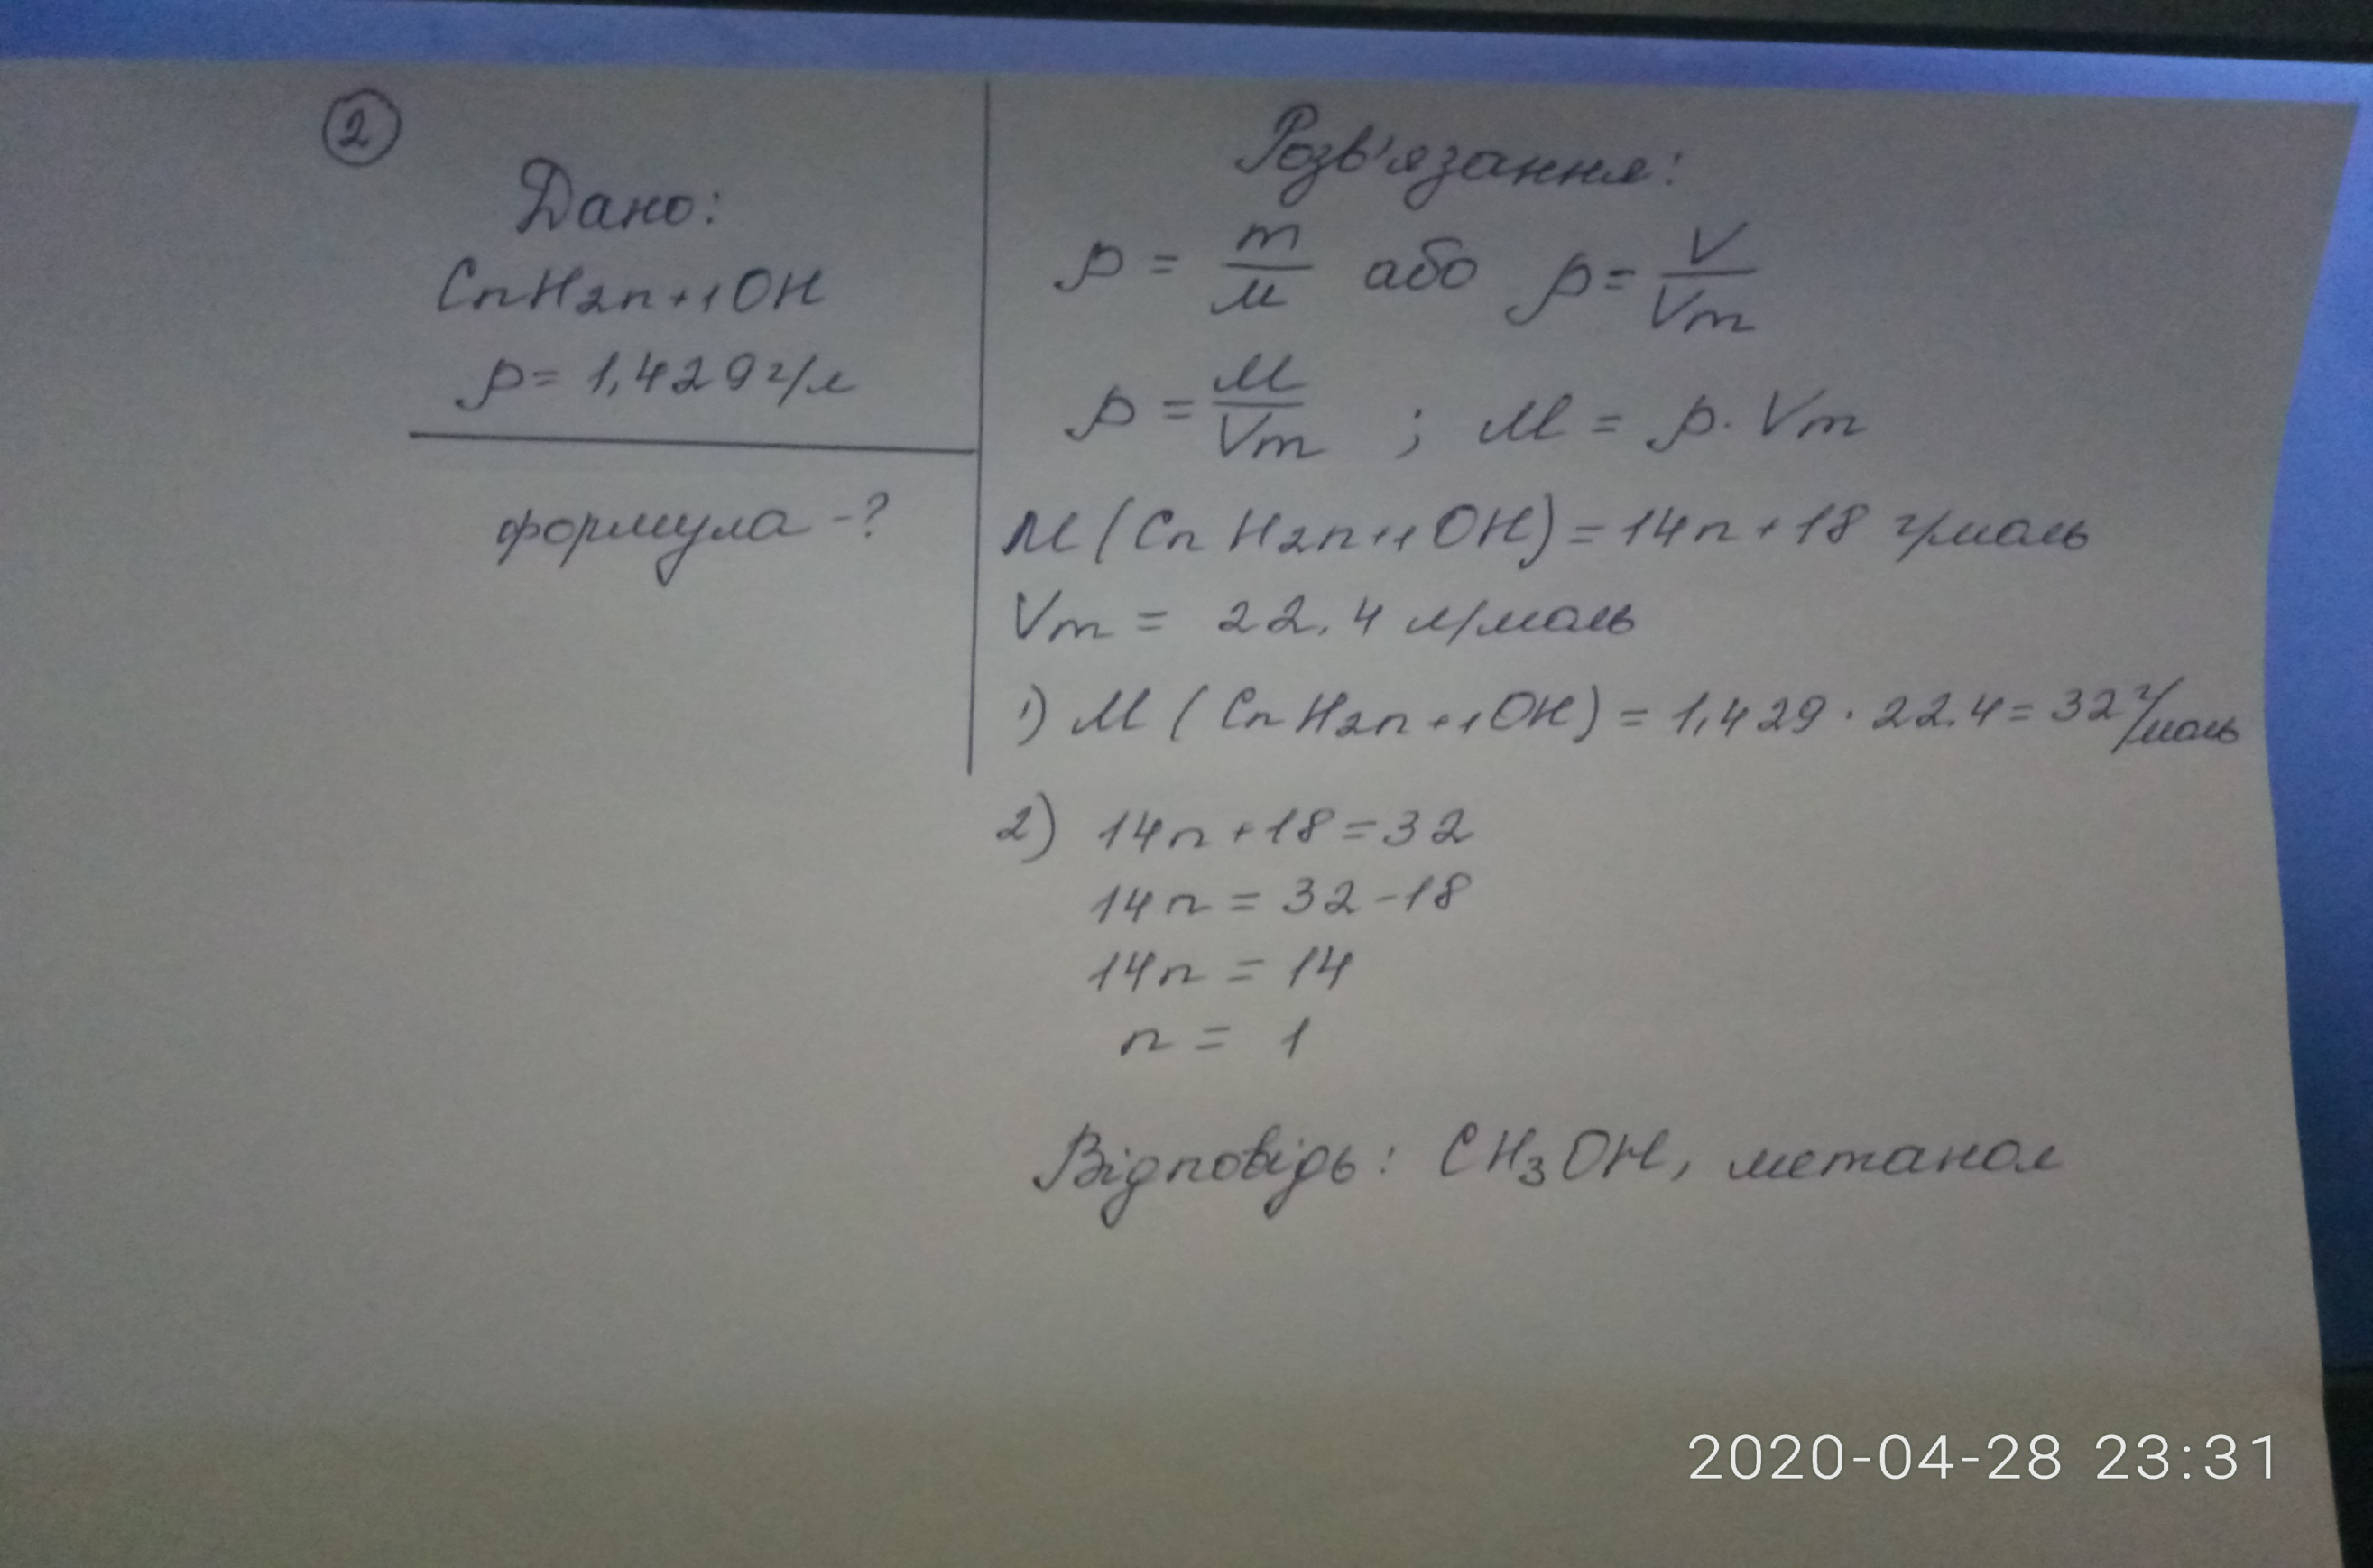 2
Дано:
CnH2n+1OH
ρ = 1,429 г/л
формула - ?
Розв'язання:
ρ = m/M або ρ = V/Vm
ρ = M/Vm ; M = ρ · Vm
M (CnH2n+1OH) = 14n + 18 г/моль
Vm = 22.4 л/моль
1) M (CnH2n+1OH) = 1,429 · 22.4 = 32 г/моль
2) 14n + 18 = 32
14n = 32 - 18
14n = 14
n = 1
Відповідь: CH3OH, метанол
2020-04-28 23:31